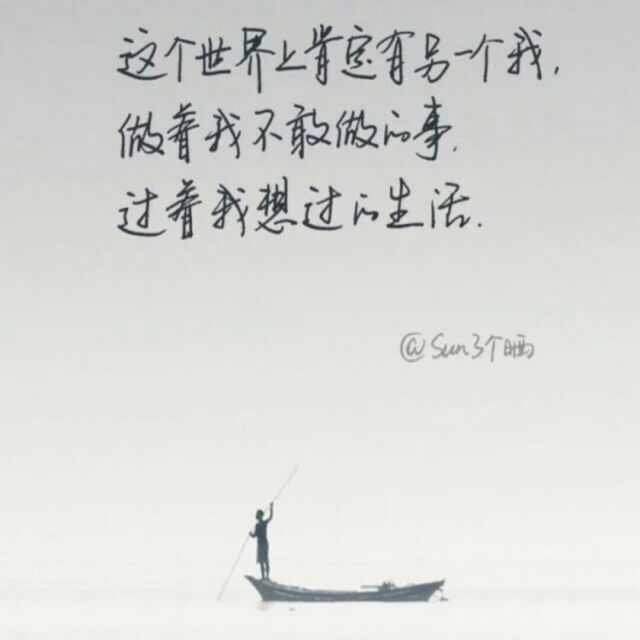 这个世界上肯定有另一个我,
做着我不敢做的事.
过着我想过的生活.
@Sun了个晒